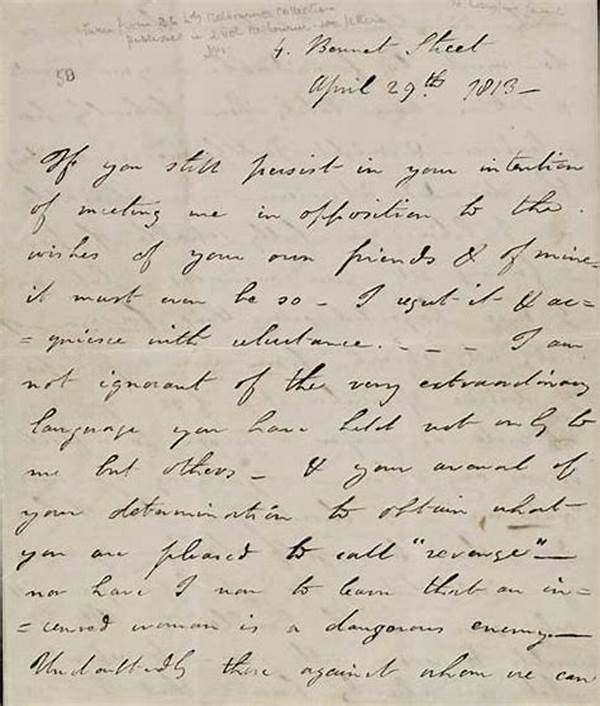 taken from the Ly Melbourne Collection
published in 2 Vol Melbourne
To Caroline Lamb
50
4. Bennet Street
April 29th. 1813 —
If you still persist in your intention
of meeting me in opposition to the
wishes of your own friends & of mine –
it must even be so – I regret it & ac=
= quiesce with reluctance. – – – I am
not ignorant of the very extraordinary
language you have held not only to
me but others – & your avowal of
your determination to obtain what
you are pleased to call "revenge" —
nor have I now to learn that an in=
= censed woman is a dangerous enemy. —
Undoubtedly those against whom we can